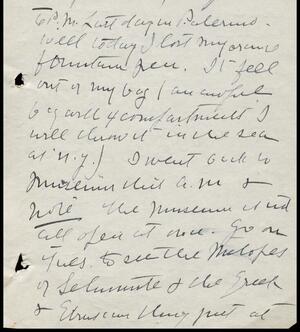 6 P.M. Last day in Palermo -
Well today I lost my
fountain pen. It fell
out of my bag (an awful
bag with 4 compartments I
will throw it in the sea
at N.Y.) I went back to
museum this a.m. &
note the museum is not
all open at once. Go on
Tues. to see the Metopes
of Selinunte & the Greek
& Etruscan things just at